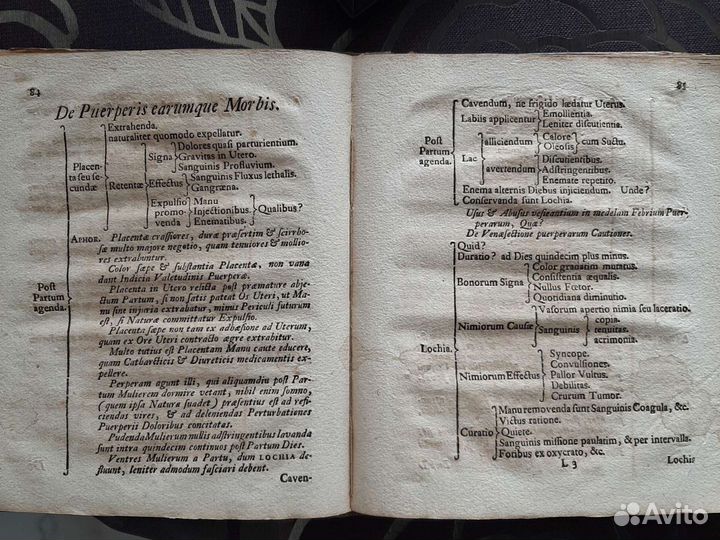 84
De Puerperis earumque Morbis.
Post
Partum
agenda.
Placen-
ta seu se-
cundæ
Extrahenda.
naturaliter quomodo expellatur.
Retentæ
Signa
Dolores quasi parturientium.
Gravitas in Utero.
Sanguinis Profluvium.
Effectus
Sanguinis Fluxus lethalis.
Gangræna.
Expulsio
promo-
venda
Manu
Injectionibus.
Enematibus.
Qualibus?
APHOR. Placentæ crassiores, duræ præsertim & scirrho-
sæ multo majore negotio, quam tenuiores & mollio-
res extrabuntur.
Color sæpe & substantia Placentæ, non vana
dant Indicia Valetudinis Puerperæ.
Placenta in Utero relicta post præmature abje-
ctum Partum, si non satis pateat Os Uteri, ut Ma-
nu sine injuria extrahatur, minus Periculi futurum
est, si Naturæ committatur Expulsio.
Placenta sæpe non tam ex adhæsione ad Uterum,
quam ex Ore Uteri contracto ægre extrahitur.
Multo tutius est Placentam Manu caute educere,
quam Catharcticis & Diureticis medicamentis ex-
pellere.
Perperam agunt illi, qui aliquamdiu post Par-
tum Mulierem dormire vetant, nihil enim somno,
(quem ipsa Natura suadet) præsentius est ad refi-
ciendas vires, & ad deleniendas Perturbationes
Puerperii Doloribus concitatas.
Pudenda Mulierum nullis adstringentibus lavanda
sunt intra quindecim continuos post Partum Dies.
Ventres Mulierum a Partu, dum LOCHIA de-
fluunt, leniter admodum fasciari debent.
Caven-
85
Post
Partum
agenda.
Cavendum, ne frigido lædatur Uterus.
Labiis applicentur
Emollientia.
Leniter discutientia.
Lac
alliciendum
Calore
Oleosis
cum Suctu.
avertendum
Discutientibus.
Adstringentibus.
Enemate repetito.
Enema alternis Diebus injiciendum. Unde?
Conservanda sunt Lochia.
Usus & Abusus vesicantium in medelam Febrium Puer-
perarum, Quæ?
De Venæsectione puerperarum Cautiones.
Lochia.
Quid?
Duratio? ad Dies quindecim plus minus.
Bonorum Signa
Color gradatim mutatus.
Consistentia æqualis.
Nullus Fœtor.
Quotidiana diminutio.
Nimiorum Causæ
Vasorum apertio nimia seu laceratio.
Sanguinis
copia.
tenuitas.
acrimonia.
Nimiorum Effectus
Syncope.
Convulsiones.
Pallor Vultus.
Debilitas.
Crurum Tumor.
Curatio
Manu removenda sunt Sanguinis Coagula, &c.
Victus ratione.
Quiete.
Sanguinis missione paulatim, & per intervalla.
Fotibus ex oxycrato, &c.
L 3
Lochia
Avito